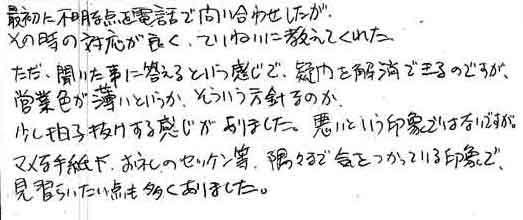 最初に不明な点を電話で問い合わせしたが、
その時の対応が良く、ていねいに教えてくれた。
ただ、聞いた事に答えるという感じで、疑問を解消できるのですが、
営業色が薄いというか、そういう方針なのか、
少し拍子抜けする感じがありました。悪いという印象ではないですが。
マメな手紙や、お礼のセッケン等、隅々まで気をつかっている印象で、
見習いたい点も多くありました。